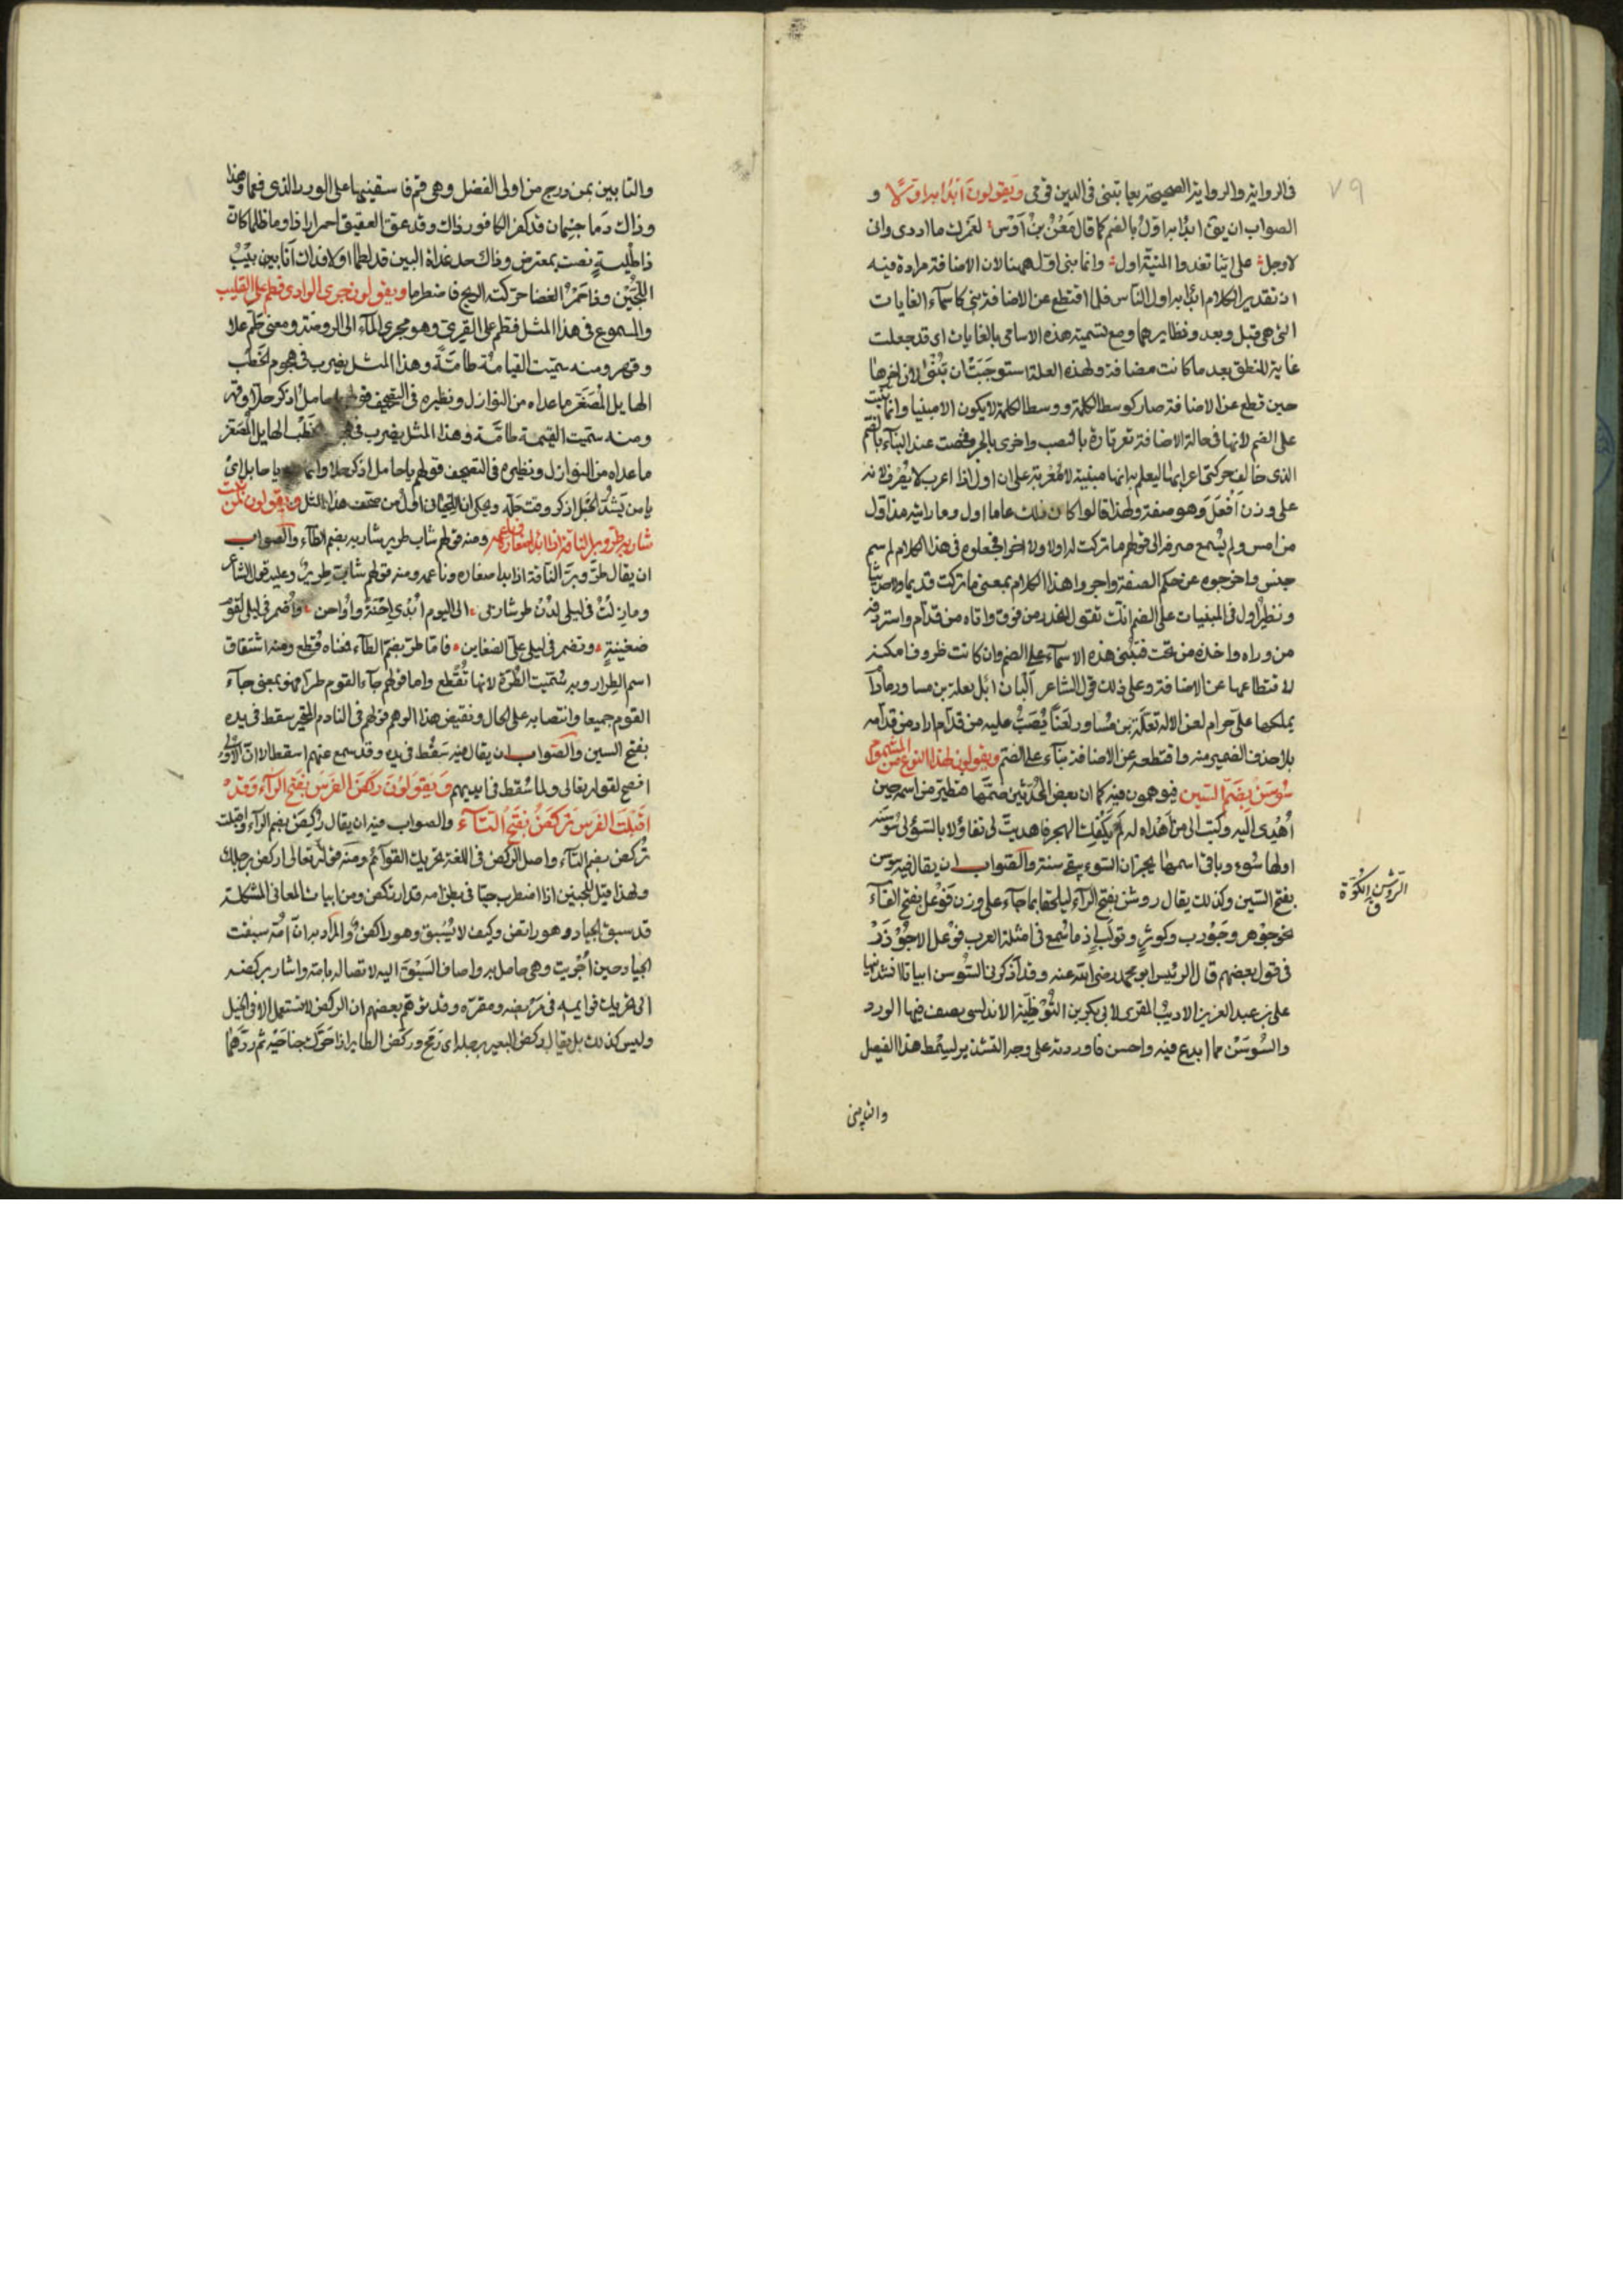 ٧٩
فى الرواية والرواية الصحيحة ربعا تبنى فى الدين قومى ويقولون ابدا به اولا و
الصواب ان يق ابدا به اول بالضم كما قال مَعْنُ بنُ اَوْس لعمرك ما ادرى وانى
لاوجل على اينا تغدوا المنية اول وانما بنى اول ههنا لان الاضافة مرادة فيه
اذ تقدير الكلام ابدا به اول الناس فلما اقتطع عن الاضافة بنى كاسمآء الغايات
التى هى قبل وبعد ونظايرهما ومع تسمية هذه الاسامى بالغايات اى قد جعلت
غاية للنطق بعد ما كانت مضافة ولهذه العلة استوجبت ان تبنى لان اخرها
حين قطع عن الاضافة صار كوسط الكلمة ووسط الكلمة لا يكون الا مبنيا وانما بنيت
على الضم لانها فى حالة الاضافة تعرب تارة بالنصب واخرى بالجر فخصت عند البنآء بالضم
الذى خالف حركتى اعرابها ليعلم به انها مبنية لا معربة على ان اول اذا اعرب لا يصرف لانه
على وزن اَفْعَلَ وهو صفة ولهذا قالوا كان ذلك عاما اول وما رايته مذ اول
من امس ولم يسمع صرفه الا فى قولهم ما تركت له اولا ولا اخرا فجعلوه فى هذا الكلام اسم
جنس واخرجوه عن حكم الصفة واجروا هذا الكلام بمعنى ما تركت قديما ولا حديثا
ونظير اول فى المبنيات على الضم انك تقول انحدر من فوق واتاه من قدام واستردفه
من وراه واخذه من تحت فتبنى هذه الاسمآء على الضم وان كانت ظروف امكنة
لاقتطاعها عن الاضافة وعلى ذلك قول الشاعر البان ابل تعلة بن مساور ما دا
يملكها علىّ حرام لعن الاله تعلة بن مساور لعنا يُصَبُّ عليه من قدام اراد من قدامه
بلا حذف الضمير منه واقتطعه عن الاضافة بنآء على الضم ويقولون لهذا النوع من المشموم
سُوسَن بضم السين فيوهمون فيه كما ان بعض المحدثين ضمها فتطير من اسمه حين
اُهْدِى اليه وكتب الى من اهداه له لم يكفك الهجر فاهديت لى تفاؤلا بالسوء لى سوسنه
اولها سوء وباقى اسمها يخبر ان السوء يبقى سنة والصواب ان يقال فيه سوسن
بفتح السين وكذلك يقال روشن بفتح الرآء ليلحقا بما جآء على وزن فَوْعَل بفتح الفآء
نحو جَوْهر وجَوْرب وكوثر وتولب اذ ما سمع فى امثلة العرب فوعل الا جُوذَر
فى قول بعضهم قال الرئيس ابو محمد رضى الله عنه وقد اذكرنى السوسن ابياتا انشدنيها
على بن عبد العزيز الاديب المقرى لابى بكر بن القوطية الاندلسى يصف فيها الورد
والسُّوسَن مما ابدع فيه واحسن فاوردته على وجه التشذير لسمط هذا الفصل
الروشن الكوة
ق
والتابين
والتابين بمن درج من اولى الفضل وهى قم فاسقنيها على الورد الذى فعما وهذا
وذاك دما جثمان قد كفر الكافور ذاك وقد عقق العقيق احمرارا ذا وما ظلما كان
ذا طلية نصت بمعترض وذاك حد غداة البين قد لطما اولا فذاك انابيب
اللجين وذا حَمْرُ الغضا حركته الريح فاضطرما ويقولون جرى الوادى فطم على القليب
والمسموع فى هذا المثل فطم على القرى وهو مجرى المآء الى الروضة ومعنى طم علا
وقهر ومنه سميت القيامة طامّة وهذا المثل يضرب فى هجوم الخطب
الهايل المُصَغِّر ما عداه من النوازل ونظيره فى التصحيف قولهم يا حامل اذكر حلا وقهر
ومنه سميت القيمة طامّة وهذا المثل يضرب فى هجوم الخطب الهايل المصغر
ما عداه من النوازل ونظيره فى التصحيف قولهم يا حامل اذكر حلا وانما هو يا حابل اى
يا من يشد الحبل اذكر وقت حله ويحكى ان اللحيانى اول من صحف هذا المثل ويقولون لمن نبت
شاربه طر وبر الناقة اذا بدا صغاره وناعمه ومنه قولهم شاب طرير شاربه بضم الطآء والصواب
ان يقال طَرَّ وبرُ الناقة اذا بدا صغاره وناعمه ومنه قولهم شاب طرير وعليه قول الشاعر
وما زلتُ فى ليلى لَدُن طر شاربى الى اليوم اُبْدى اِحْنَةً واُواحن واُضمر فى ليلى لقوم
ضغينة وتضمر فى ليلى علىّ الضغاين فاما طر بضم الطآء فمعناه قُطع ومنه اشتقاق
اسم الطرار وبه سُمّيت الطُّرة لانها تُقْطع واما قولهم جآء القوم طرا فهو بمعنى جآء
القوم جميعا وانتصابه على الحال ونقيض هذا الوهم قولهم فى النادم المتحير سقط فى يده
بفتح السين والصواب ان يقال فيه سُقط فى يده وقد سمع عنهم اسقط الا ان الاول
افصح لقوله تعالى ولما سُقط فى ايديهم ويقولون ركَضَ الفرس بفتح الرآء وقد
اقبلت الفرس تركض بفتح التآء والصواب فيه ان يقال رُكِضَ بضم الرآء واقبلت
تُركض بضم التآء واصل الركض فى اللغة تحريك القوآئم ومنه قوله تعالى اركض برجلك
ولهذا قيل للجنين اذا اضطرب حيا فى بطن امه قد ارتكض ومن ابيات المعانى المشكلة
قد سبق الجياد وهو راتض وكيف لا يُسبق وهو راكض والمراد به ان امه سبقت
الجياد حين اُجريت وهى حامل به واضاف السبق اليه لاتصاله بامه واشار بركضه
الى تحريك قوايمه فى مربضه ومقره وقد توهم بعضهم ان الركض لا يستعمل الا فى الخيل
وليس كذلك بل يقال ركض البعير برجله اى رَمَح وركض الطاير اذا حرّك جناحيه ثم ردهما